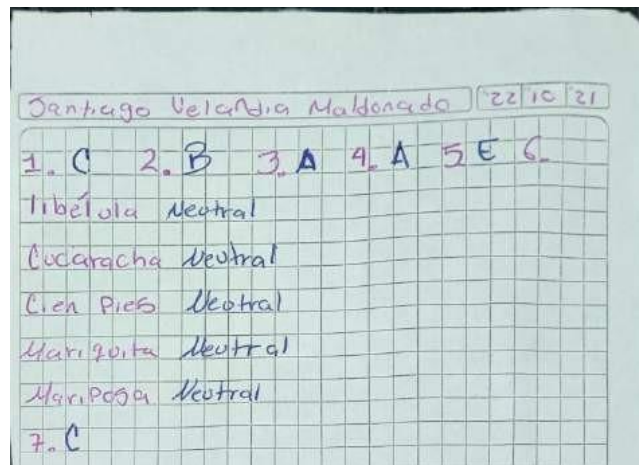 Santiago Velandia Maldonado 22 10 21
1. C 2. B 3. A 4. A 5 E 6.
libélula Neotral
Cucaracha Neutral
Cien Pies Neotral
Mariquita Neutral
Mariposa Neutral
7. C